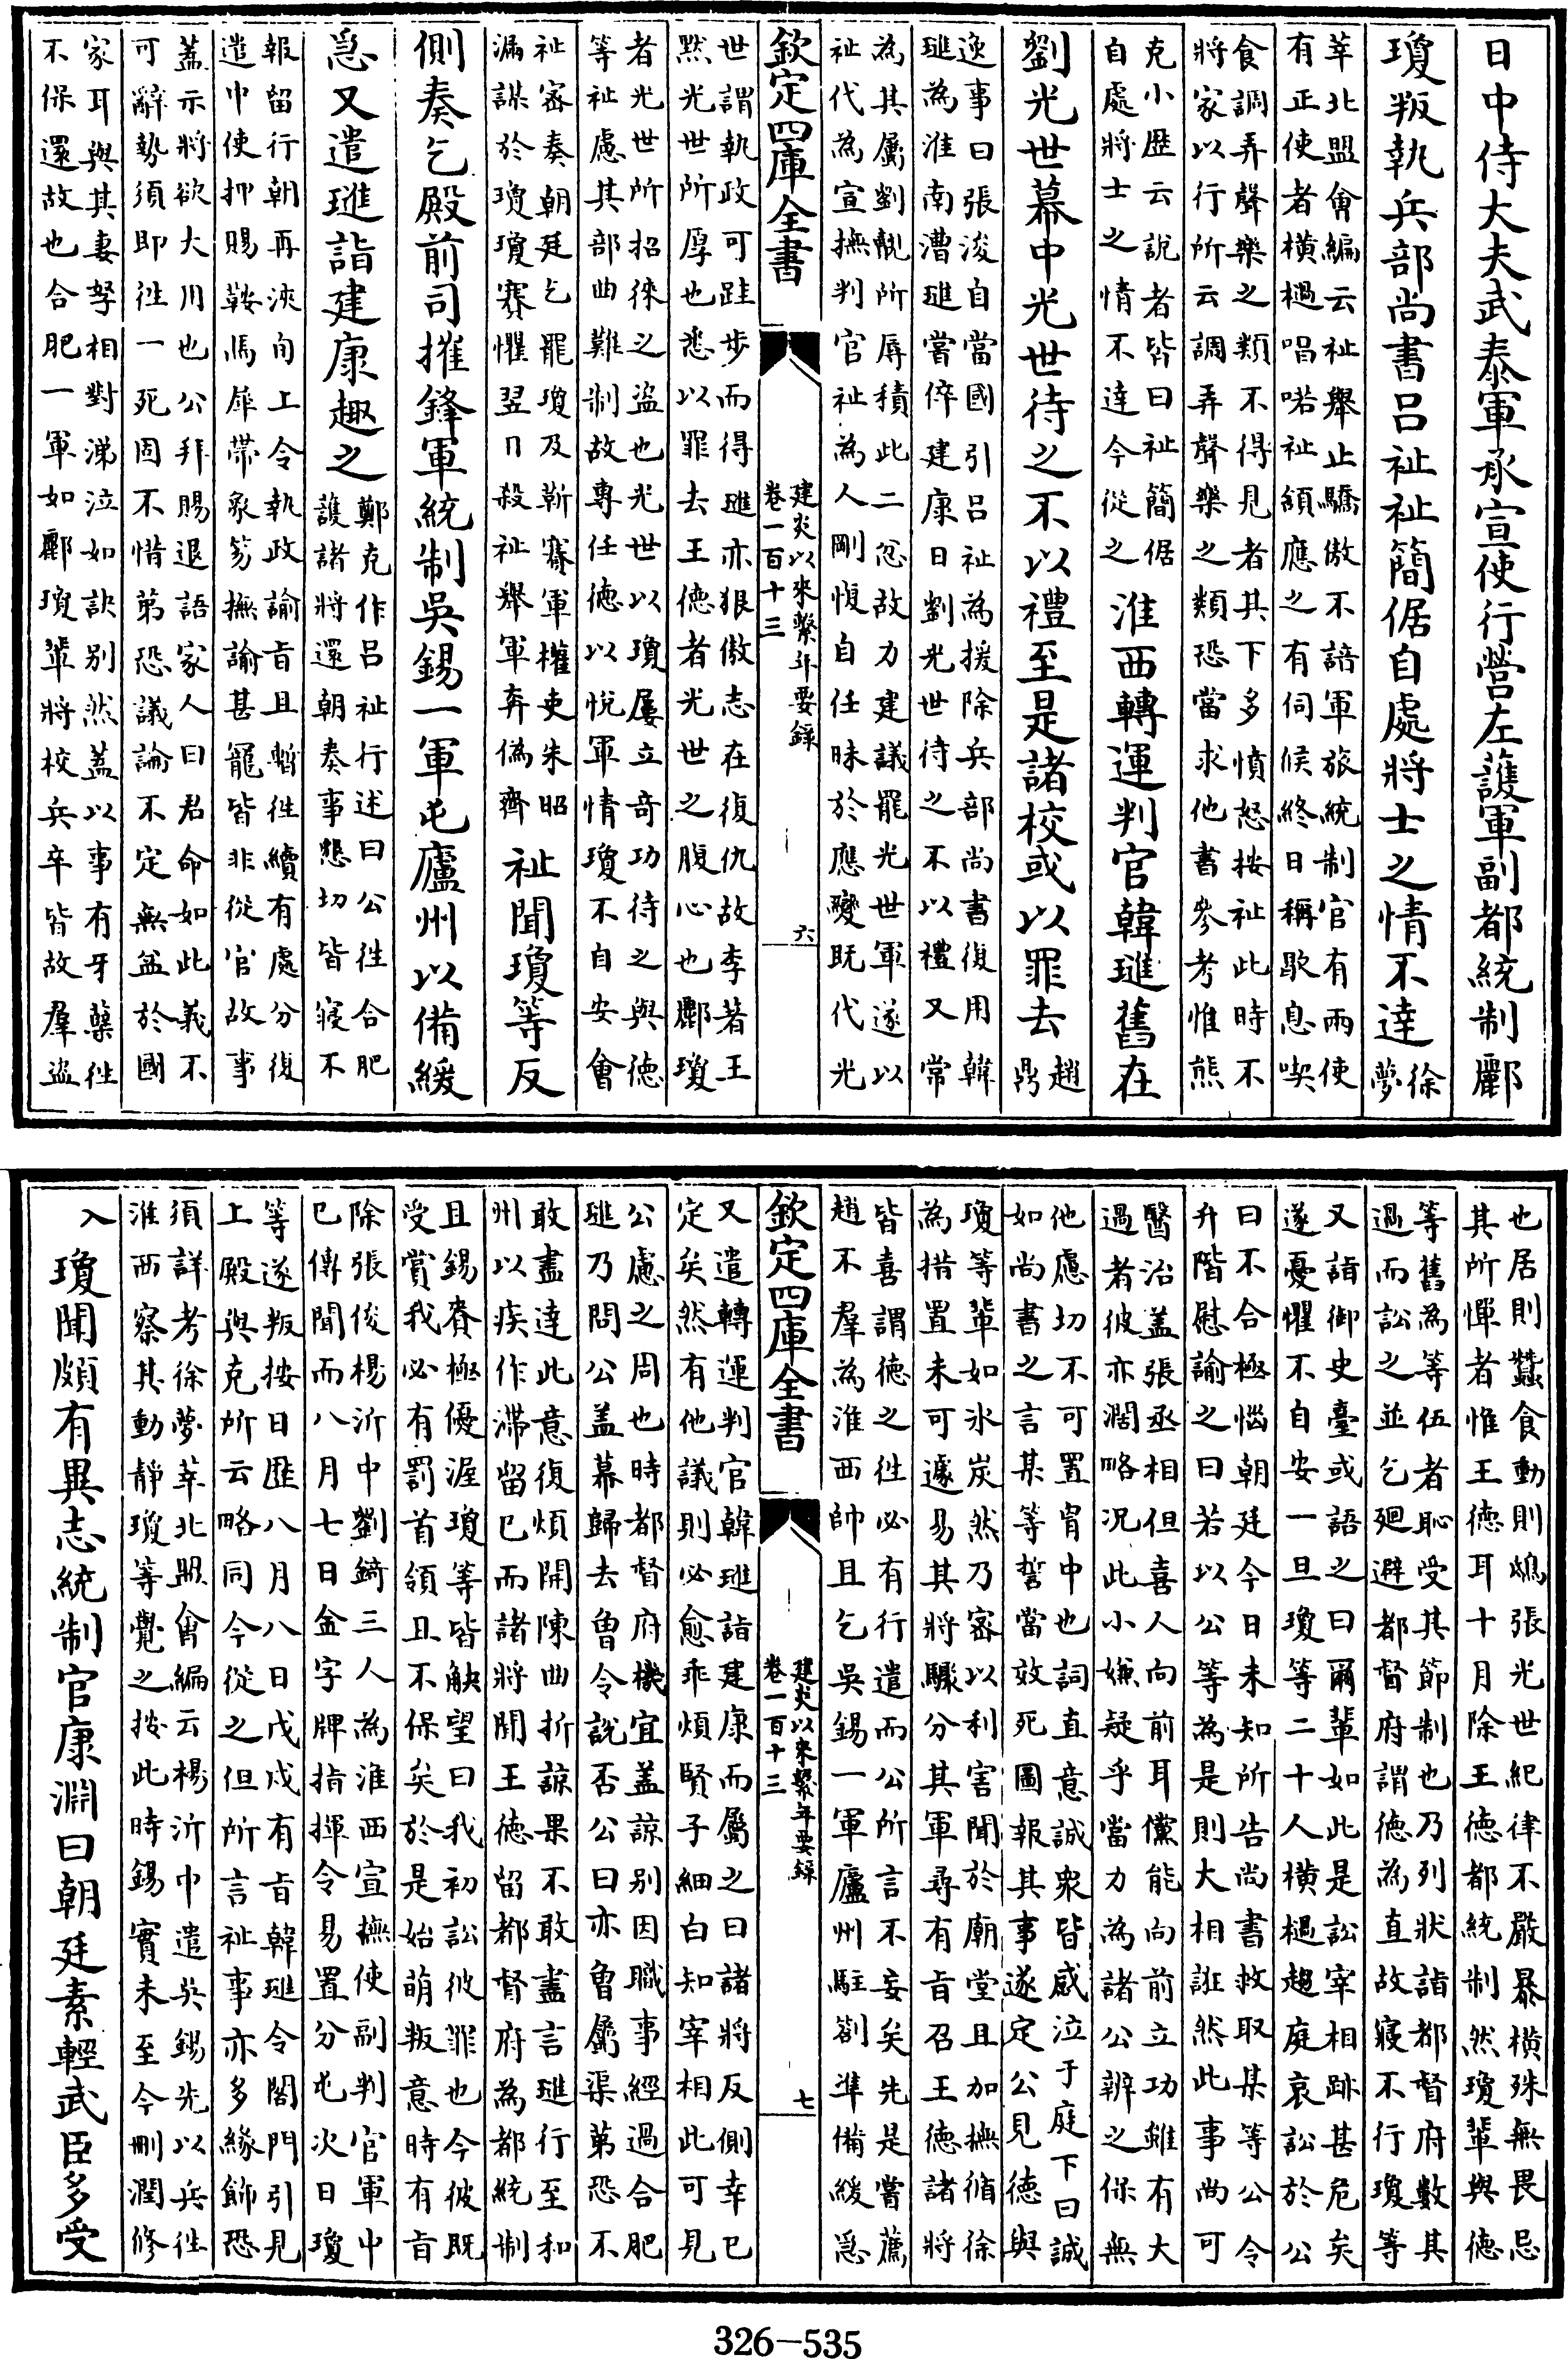 日中侍大夫武泰軍承宣使行營左護軍副都統制酈
瓊叛執兵部尚書吕祉祉簡倨自處將士之情不達徐夢
莘北盟㑹編云祉舉止驕傲不諳軍旅統制官有兩使
有正使者横檛唱喏祉頟應之有伺候終日稱歇息喫
食調弄聲樂之類不得見者其下多憤怒按祉此時不
將家以行所云調弄聲樂之類恐當求他書參考惟熊
克小歴云說者皆曰祉簡倨
自處將士之情不達今從之
淮西轉運判官韓璡舊在
劉光世幕中光世待之不以禮至是諸校或以罪去趙鼎
逸事曰張浚自當國引吕祉為援除兵部尚書復用韓
璡為淮南漕璡嘗倅建康日劉光世待之不以禮又常
為其屬劉觥所辱積此二忿故力建議罷光世軍遂以
祉代為宣撫判官祉為人剛愎自任昧於應變既代光
欽定四庫全書
建炎以來繫年要録
卷一百十三
六
世謂執政可跬步而得璡亦狠傲志在復仇故李著王
默光世所厚也悉以罪去王德者光世之腹心也酈瓊
者光世所招徠之盜也光世以瓊屢立奇功待之與德
等祉慮其部曲難制故專任德以悅軍情瓊不自安㑹
祉密奏朝廷乞罷瓊及靳賽軍權吏朱昭
漏謀於瓊賽懼翌日殺祉舉軍奔偽齊
祉聞瓊等反
側奏乞殿前司摧鋒軍統制吳錫一軍屯廬州以備緩
急又遣璡詣建康趣之
鄭克作吕祉行述曰公徃合肥
護諸將還朝奏事懇切皆寢不
報留行朝再浹旬上令執政諭旨且暫徃續有處分復
遣中使押賜鞍馬犀帶象笏撫諭甚寵皆非從官故事
蓋示將欲大用也公拜賜退語家人曰君命如此義不
可辭勢須即徃一死固不惜第恐議論不定無益於國
家耳與其妻孥相對涕泣如訣别然蓋以事有牙蘖徃
不保還故也合肥一軍如酈瓊軰將校兵卒皆故羣盜
也居則蠶食動則鴟張光世紀律不嚴暴横殊無畏忌
其所憚者惟王德耳十月除王德都統制然瓊軰與德
等舊為等伍者恥受其節制也乃列狀詣都督府數其
過而訟之並乞廻避都督府謂德為直故寢不行瓊等
又詣御史臺或語之曰爾輩如此是訟宰相跡甚危矣
遂憂懼不自安一旦瓊等二十人横檛趨庭哀訟於公
曰不合極惱朝廷今日未知所告尚書救取某等公令
升階慰諭之曰若以公等為是則大相誑然此事尚可
醫治盖張丞相但喜人向前耳儻能向前立功雖有大
過者彼亦濶略况此小嫌疑乎當力為諸公辨之保無
他慮切不可置胷中也詞直意誠衆皆感泣于庭下曰誠
如尚書之言某等誓當效死圖報其事遂定公見德與
瓊等軰如氷炭然乃密以利害聞於廟堂且加撫循徐
為措置未可遽易其將驟分其軍尋有旨召王德諸將
皆喜謂德之徃必有行遣而公所言不妄矣先是嘗薦
趙不羣為淮西帥且乞吳錫一軍廬州駐劄準備緩急
欽定四庫全書
建炎以來繫年要録
卷一百十三
七
又遣轉運判官韓璡詣建康而屬之曰諸將反側幸已
定矣然有他議則必愈乖煩賢子細白知宰相此可見
公慮之周也時都督府機宜蓋諒别因職事經過合肥
璡乃問公盖幕歸去曽令說否公曰亦曽屬渠第恐不
敢盡達此意復煩開陳曲折諒果不敢盡言璡行至和
州以疾作滯留已而諸將聞王德留都督府為都統制
且錫賚極優渥瓊等皆觖望曰我初訟彼罪也今彼既
受賞我必有罰首領且不保矣於是始萌叛意時有旨
除張俊楊沂中劉錡三人為淮西宣撫使副判官軍中
已傳聞而八月七日金字牌指揮令易置分屯次日瓊
等遂叛按日歴八月八日戊戌有旨韓璡令閤門引見
上殿與克所云略同今從之但所言祉事亦多緣飾恐
須詳考徐夢莘北盟㑹編云楊沂中遣吳錫先以兵徃
淮西察其動靜瓊等覺之按此時錫實未至今刪潤修
入
瓊聞頗有異志統制官康淵曰朝廷素輕武臣多受
326-535